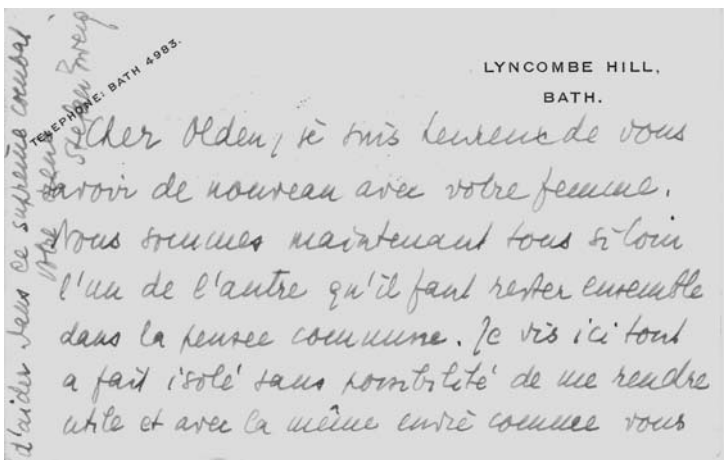 TELEPHONE: BATH 4983.
LYNCOMBE HILL,
BATH.
Cher Olden, je suis heureux de vous
savoir de nouveau avec votre femme.
Nous sommes maintenant tous si loin
l'un de l'autre qu'il faut rester ensemble
dans la pensee commune. Je vis ici tout
a fait isolé sans possibilité de me rendre
utile et avec la même envie comme vous
d'aider dans ce suprême combat
Votre
Stefan Zweig